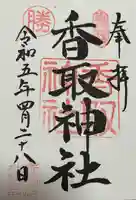 奉拝
香取神社
令和五年四月二十八日
勝